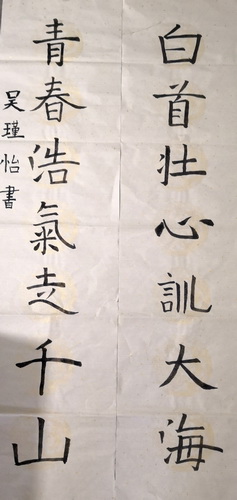 白首壮心訓大海
青春浩氣走千山
吴瑾怡書